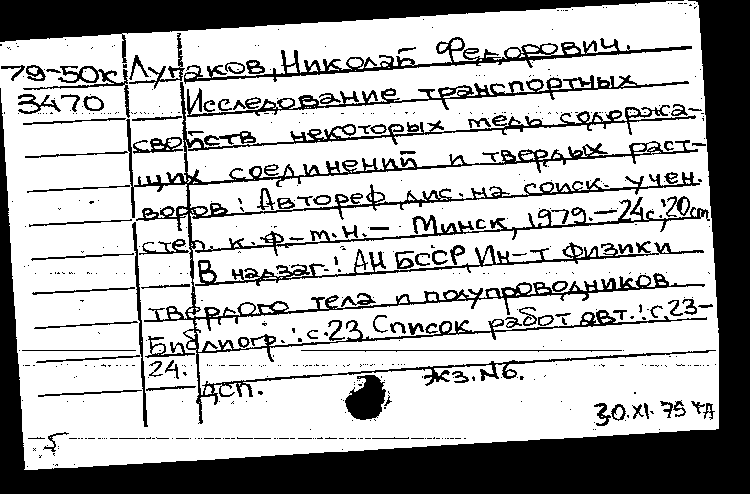 79-50к Лугаков, Николай Федорович.
3470 Исследование транспортных
свойств некоторых медь содержа-
щих соединений и твердых раст-
воров: Автореф дис. на соиск. учен.
степ. к. ф-м.н. - Минск, 1979. - 24с.; 20см
В надзаг.: АН БССР, Ин-т физики
твердого тела и полупроводников.
Библиогр.: с. 23. Список работ авт.: с. 23-
24.
ДСП. Экз. №6.
30.XI.79
5